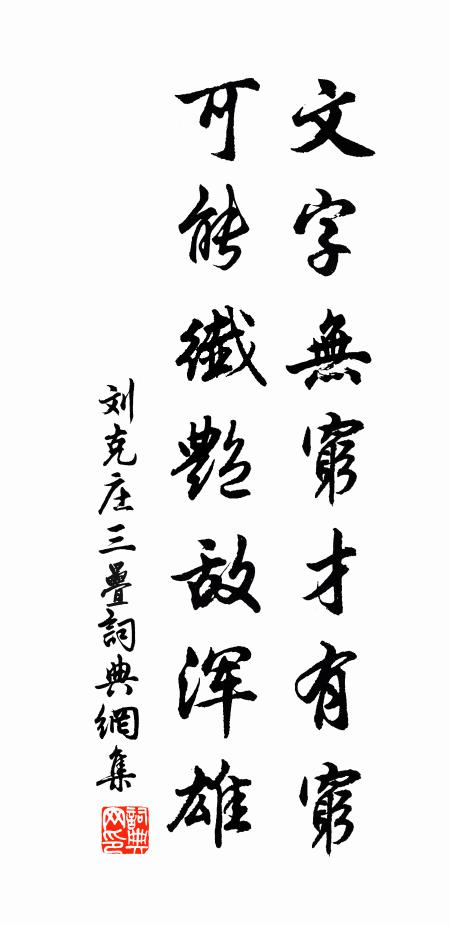 文字無窮才有窮
可能纖艷敌浑雄
刘克庄三疊詞典網集
詞典網印